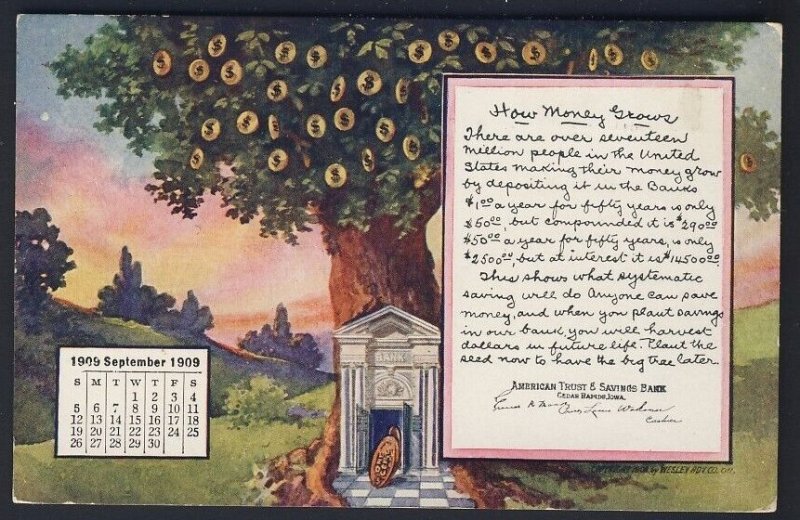 How Money Grows
There are over seventeen
million people in the United
States making their money grow
by depositing it in the Banks
$1.00 a year for fifty years is only
$50.00, but compounded it is $290.00
$50.00 a year for fifty years, is only
$2500.00, but at interest it is $14500.00.
This shows what systematic
saving will do Anyone can save
money, and when you plant savings
in our bank, you will harvest
dollars in future life. Plant the
seed now to have the big tree later.
AMERICAN TRUST & SAVINGS BANK
CEDAR RAPIDS, IOWA.
Cashier
BANK
1909 September 1909
S M T W T F S
1 2 3 4
5 6 7 8 9 10 11
12 13 14 15 16 17 18
19 20 21 22 23 24 25
26 27 28 29 30
COPYRIGHT by WESLEY ADV. CO.